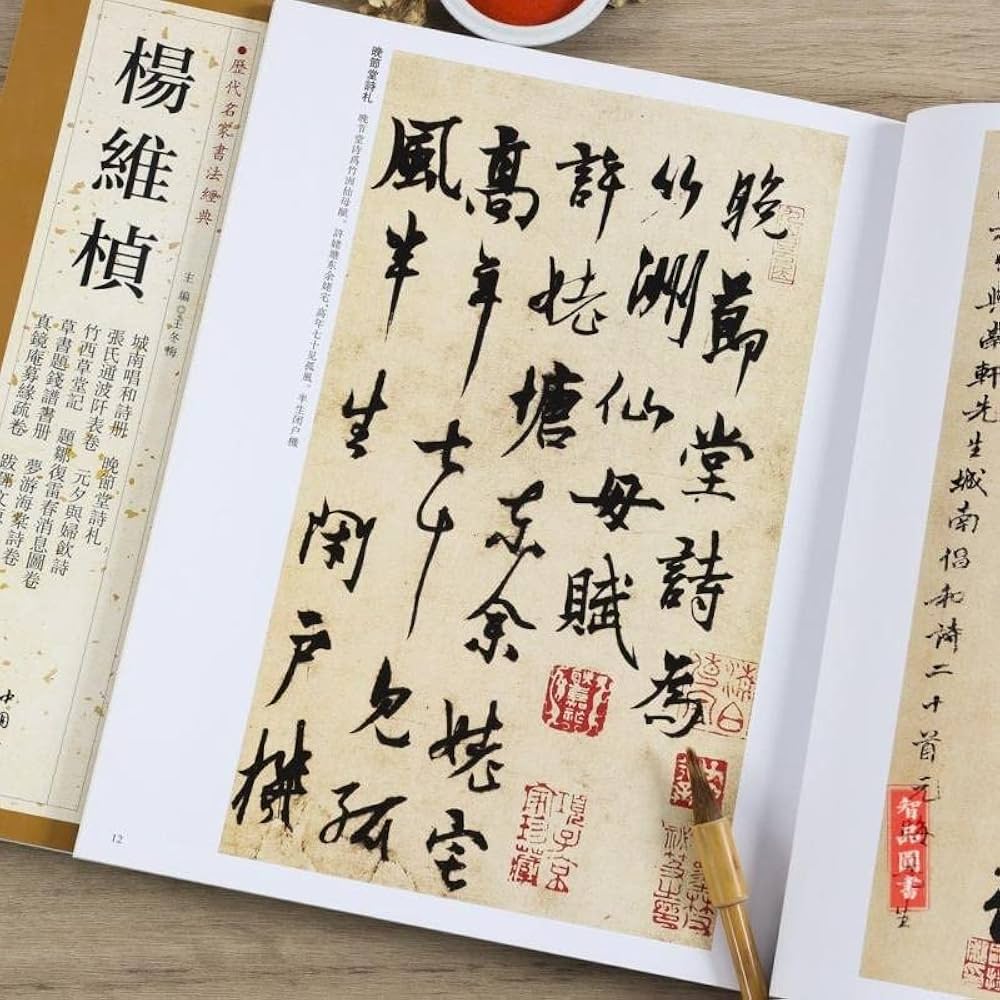 歷代名家書法經典
楊維楨
主編◎王冬梅
城南唱和詩册 晚節堂詩札
張氏通波阡表卷 元夕與婦飲詩
竹西草堂記 題鄒復雷春消息圖卷
草書題錢譜書册 夢游海棠詩卷
真鏡庵募緣疏卷
中國
晚節堂詩札 晚节堂诗爲竹洲仙母賦。許姥塘东余姥宅,高年七十见孤風。半生闭户機
晚節堂詩為
竹洲仙母賦
許姥塘东余姥宅
高年七十見孤
風半生閉户機
項子京家珍藏
12
與南軒先生城南倡和詩二十首元
智品圖書